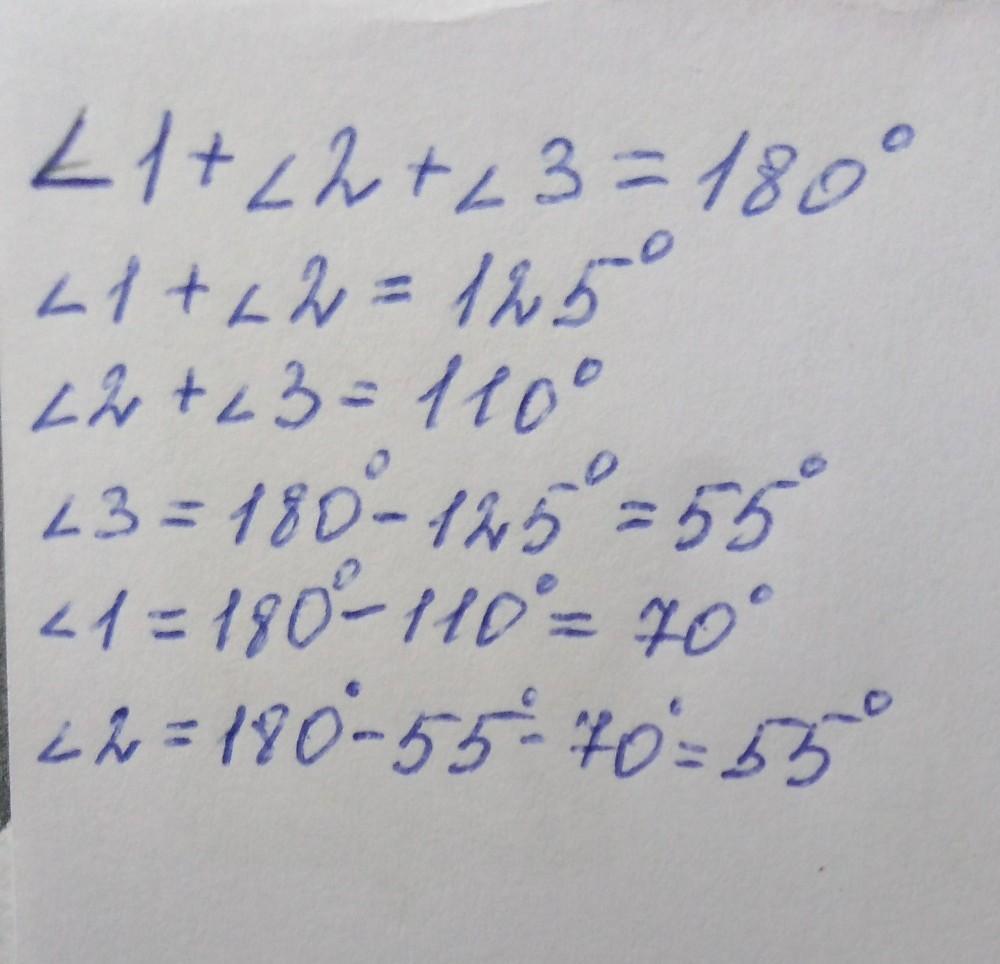 ∠1+∠2+∠3=180°
∠1+∠2=125°
∠2+∠3=110°
∠3=180°-125°=55°
∠1=180°-110°=70°
∠2=180°-55°-70°=55°